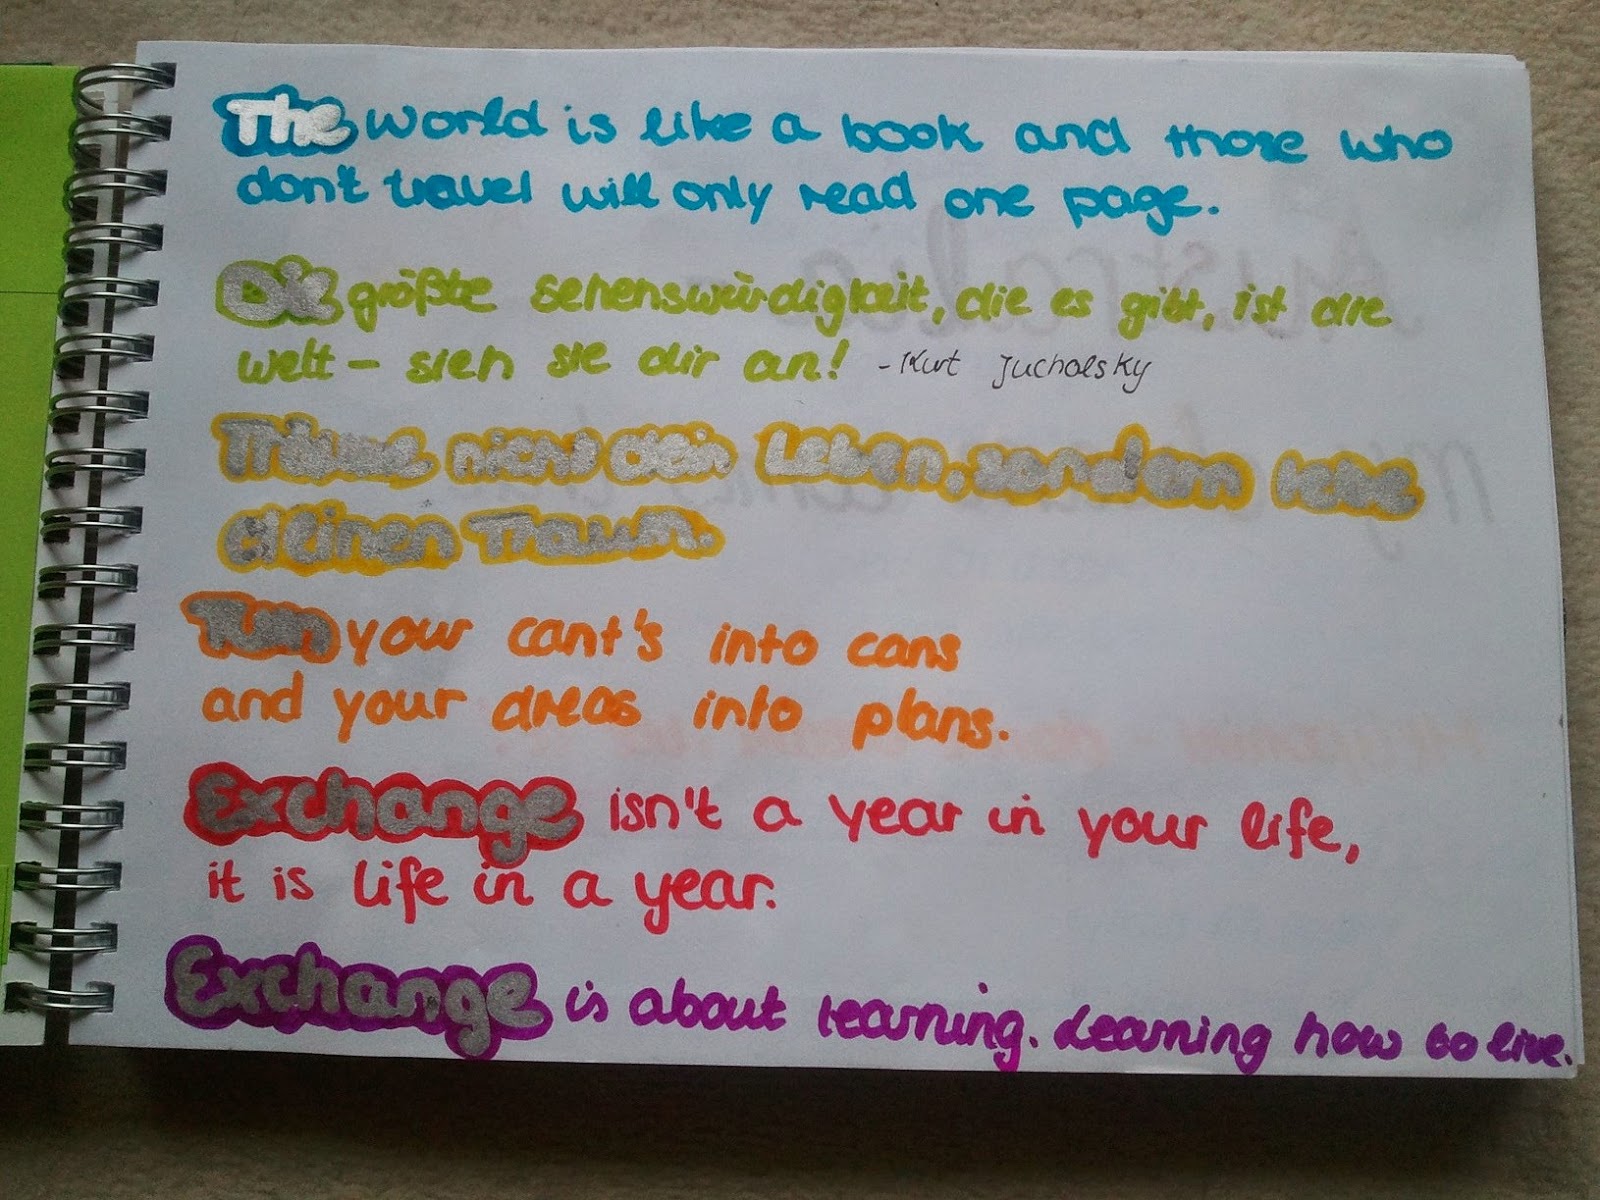 The world is like a book and those who
don't travel will only read one page.
Die größte Sehenswürdigkeit, die es gibt, ist die
welt - sieh sie dir an! - Kurt Tucholsky
Träume nicht dein Leben, sondern lebe
deinen Traum.
Turn your cant's into cans
and your dreas into plans.
Exchange isn't a year in your life,
it is life in a year.
Exchange is about learning. Learning how to live.